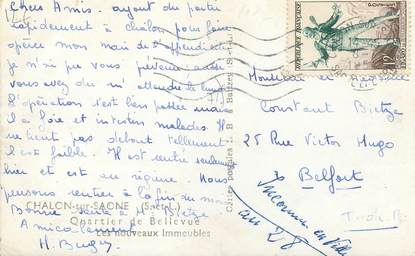 Chers Amis. ayant du partir
rapidement à châlon pour faire
opérer mon mari de l'appendicite
je n'ai pu vous prévenir aussi
vous avez du m'attendre le lundi
L'opération s'est bien passée mais
il a foie et intestins malades. Il
ne tient pas debout tellement
il est faible. Il est rentré seulement
hier et est au régime. Nous
pensons rentrer à la fin du mois
Bonne santé à Mr Bietze
Amicalement
CHALON-sur-SAONE (S.-et-L.)
Quartier de Bellevue
Les nouveaux Immeubles
Cartes postales
REPUBLIQUE FRANÇAISE
12F
POSTES
Monsieur et Madame
Constant Bietze
25 Rue Victor Hugo
Belfort
Inconnu en Ville
au 28